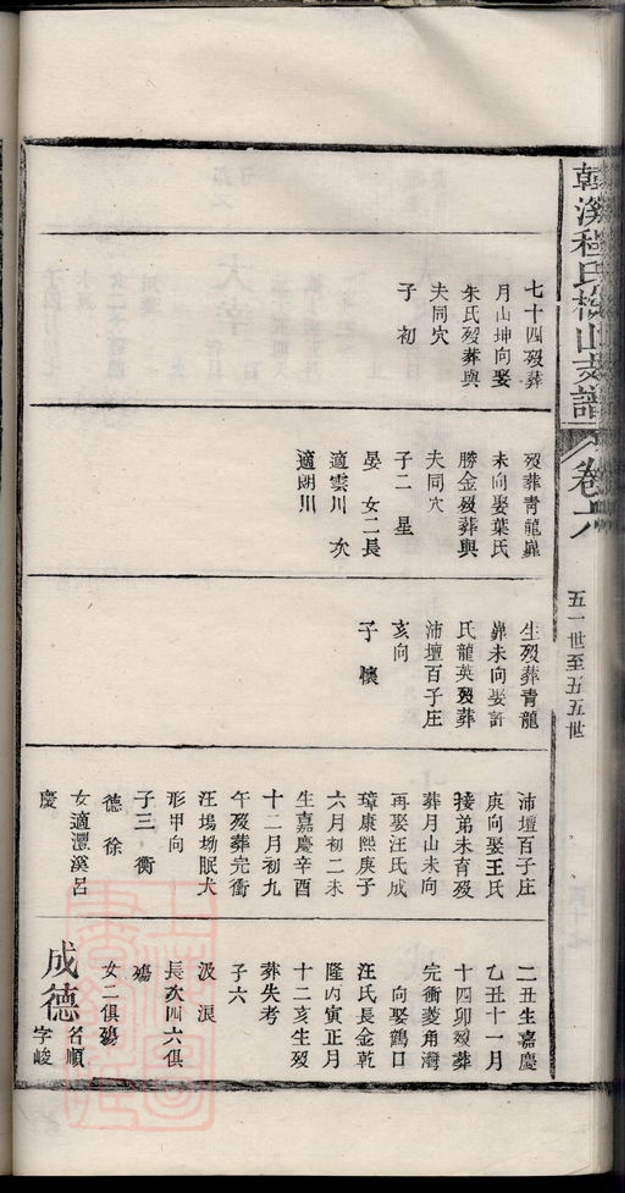 韓溪程氏梅山支譜
卷六
五一世至五五世
七十四歿葬
月山坤向娶
朱氏歿葬與
夫同穴
子初
歿葬青龍嶽
未向娶葉氏
勝金歿葬與
夫同穴
子二 星
晏 女二長
適雲川 次
適朗川
生歿葬青龍
嶽未向娶許
氏龍英歿葬
沛壇百子庄
亥向
子懷
沛壇百子庄
庚向娶王氏
接弟未育歿
葬月山未向
再娶汪氏成
璋康熙庚子
六月初二未
生嘉慶辛酉
十二月初九
午歿葬完衝
汪塢坳眠犬
形甲向
子三 衡
德 徐
女適灃溪呂
慶
二丑生嘉慶
乙丑十一月
十四卯歿葬
完衝菱角灣
向娶鶴口
汪氏長金乾
隆丙寅正月
十二亥生歿
葬失考
子六
汲 淚
長次四六俱
殤
女二俱殤
成德 名順
字峻